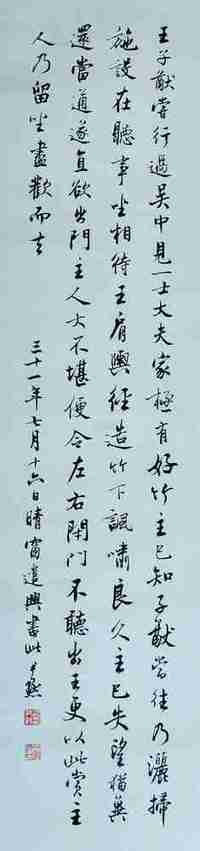 王子猷嘗行過吳中見一士大夫家極有好竹主已知子猷當往乃灑掃
施設在聽事坐相待王肩輿徑造竹下諷嘯良久主已失望猶冀
還當通遂直欲出門主人大不堪便令左右閉門不聽出王更以此賞主
人乃留坐盡歡而去
三十一年七月十六日晴窗遣興書此尹默